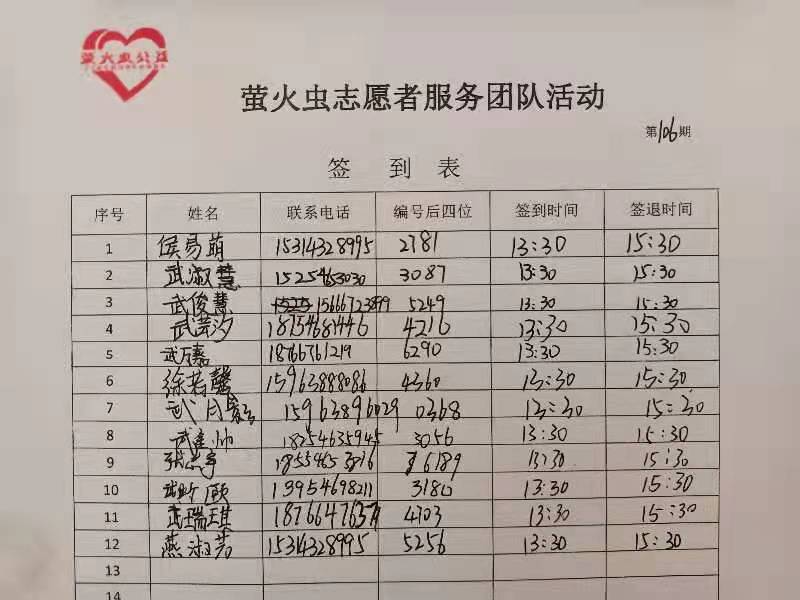 萤火虫公益
萤火虫志愿者服务团队活动
第106期
签 到 表
序号 姓名 联系电话 编号后四位 签到时间 签退时间
1 侯易萌 15314328995 2781 13:30 15:30
2 武淑慧 15254653030 3087 13:30 15:30
3 武俊慧 15666723899 5249 13:30 15:30
4 武芸汐 18754681446 4216 13:30 15:30
5 武万嘉 18766761219 6290 13:30 15:30
6 徐若馨 15963888086 4360 13:30 15:30
7 武月 15963896029 0368 13:30 15:30
8 武 帅 18254635945 3056 13:30 15:30
9 张 宇 18554653816 6189 13:30 15:30
10 武 颐 13954698211 3180 13:30 15:30
11 武瑞琪 18766476371 4103 13:30 15:30
12 燕淑芳 15314328995 5256 13:30 15:30
13
14